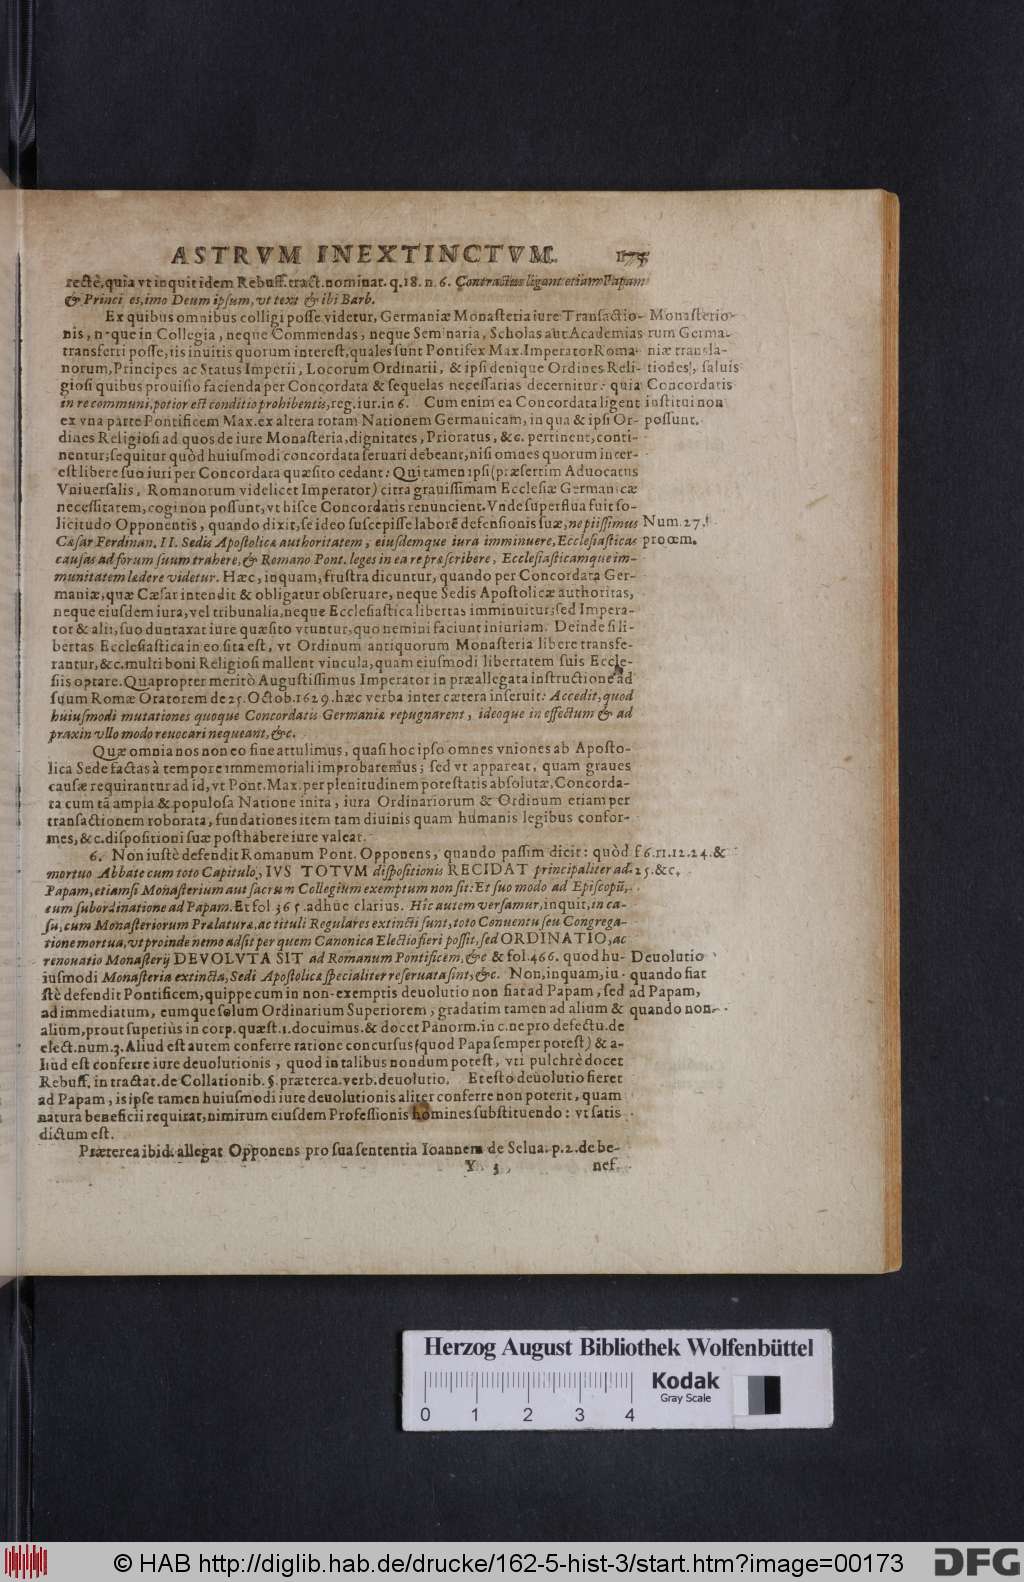 ASTRVM INEXTINCTVM. 175
rectè, quia vt inquit idem Rebuff. tract. nominat. q. 18. n. 6. Contractus ligant etiam Papam
& Princi es, imo Deum ipsum, vt text & ibi Barb.
Ex quibus omnibus colligi posse videtur, Germaniæ Monasteria iure Transactio-
nis, neque in Collegia, neque Commendas, neque Seminaria, Scholas aut Academias
transferri posse, iis inuitis quorum interest, quales sunt Pontifex Max. Imperator Roma-
norum, Principes ac Status Imperii, Locorum Ordinarii, & ipsi denique Ordines Reli-
giosi quibus prouisio facienda per Concordata & sequelas necessarias decernitur: quia
in re communi, potior est conditio prohibentis, reg. iur. in 6. Cum enim ea Concordata ligent
ex vna parte Pontificem Max. ex altera totam Nationem Germanicam, in qua & ipsi Or-
dines Religiosi ad quos de iure Monasteria, dignitates, Prioratus, &c. pertinent, conti-
nentur; sequitur quòd huiusmodi concordata seruari debeant, nisi omnes quorum inter-
est libere suo iuri per Concordata quæsito cedant: Qui tamen ipsi (præsertim Aduocatus
Vniuersalis, Romanorum videlicet Imperator) citra grauissimam Ecclesiæ Germanicæ
necessitatem, cogi non possunt, vt hisce Concordatis renuncient. Vnde superflua fuit so-
licitudo Opponentis, quando dixit, se ideo suscepisse laborē defensionis suæ, ne piissimus
Cæsar Ferdinan. II. Sedis Apostolicæ authoritatem, eiusdemque iura imminuere, Ecclesiasticas
causas ad forum suum trahere, & Romano Pont. leges in ea repræscribere, Ecclesiasticamque im-
munitatem lædere videtur. Hæc, inquam, frustra dicuntur, quando per Concordata Ger-
maniæ, quæ Cæsar intendit & obligatur obseruare, neque Sedis Apostolicæ authoritas,
neque eiusdem iura, vel tribunalia, neque Ecclesiastica libertas imminuitur; sed Impera-
tor & alii, suo duntaxat iure quæsito vtuntur, quo nemini faciunt iniuriam. Deinde si li-
bertas Ecclesiastica in eo sita est, vt Ordinum antiquorum Monasteria libere transfe-
rantur, &c. multi boni Religiosi mallent vincula, quam eiusmodi libertatem suis Eccle-
siis optare. Quapropter meritò Augustissimus Imperator in præallegata instructione ad
suum Romæ Oratorem de 25. Octob. 1629. hæc verba inter cætera inseruit: Accedit, quod
huiusmodi mutationes quoque Concordatis Germaniæ repugnarent, ideoque in effectum & ad
praxin vllo modo reuocari nequeant, &c.
Quæ omnia nos non eo fine attulimus, quasi hoc ipso omnes vniones ab Aposto-
lica Sede factas à tempore immemoriali improbaremus; sed vt appareat, quam graues
causæ requirantur ad id, vt Pont. Max. per plenitudinem potestatis absolutæ, Concorda-
ta cum tā ampla & populosa Natione inita, iura Ordinariorum & Ordinum etiam per
transactionem roborata, fundationes item tam diuinis quam humanis legibus confor-
mes, &c. dispositioni suæ posthabere iure valeat.
6. Non iustè defendit Romanum Pont. Opponens, quando passim dicit: quòd
mortuo Abbate cum toto Capitulo, IVS TOTVM dispositionis RECIDAT principaliter ad
Papam, etiamsi Monasterium aut sacrum Collegium exemptum non sit: Et suo modo ad Episcopū,
cum subordinatione ad Papam. Et fol 365. adhuc clarius. Hîc autem versamur, inquit, in ca-
su, cum Monasteriorum Prælatura, ac tituli Regulares extincti sunt, toto Conuentu seu Congrega-
tione mortua, vt proinde nemo adsit per quem Canonica Electio fieri possit, sed ORDINATIO, ac
renouatio Monasterij DEVOLVTA SIT ad Romanum Pontificem, &c & fol. 466. quod hu-
iusmodi Monasteria extincta, Sedi Apostolicæ specialiter reseruata sint, &c. Non, inquam, iu-
stè defendit Pontificem, quippe cum in non-exemptis deuolutio non fiat ad Papam, sed
ad immediatum, eumque solum Ordinarium Superiorem, gradatim tamen ad alium &
alium, prout superiùs in corp. quæst. 1. docuimus. & docet Panorm. in c. ne pro defectu. de
elect. num. 3. Aliud est autem conferre ratione concursus (quod Papa semper potest) & a-
liud est conferre iure deuolutionis, quod in talibus nondum potest, vti pulchrè docet
Rebuff. in tractat. de Collationib. §. præterea. verb. deuolutio. Et esto deuolutio fieret
ad Papam, is ipse tamen huiusmodi iure deuolutionis aliter conferre non poterit, quam
natura beneficii requirat, nimirum eiusdem Professionis homines substituendo: vt satis
dictum est.
Præterea ibid. allegat Opponens pro sua sententia Ioannem de Selua. p. 2. de be-
Y 3 nef.
Monasterio-
rum Germa-
niæ transla-
tiones, saluis
Concordatis
institui non
possunt.
Num. 27.
proœm.
f 6. 11. 12. 24. &
25. &c.
Deuolutio
quando fiat
ad Papam,
quando non.
Herzog August Bibliothek Wolfenbüttel
Kodak
Gray Scale
0 1 2 3 4
© HAB http://diglib.hab.de/drucke/162-5-hist-3/start.htm?image=00173
DFG